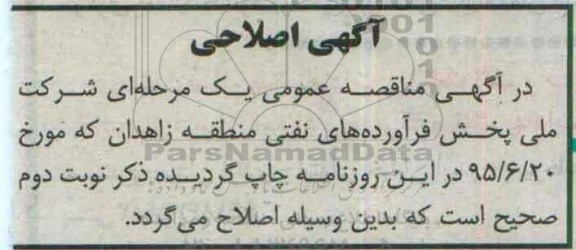 آگهی اصلاحی
در آگهی مناقصه عمومی یک مرحله‌ای شرکت
ملی پخش فرآورده‌های نفتی منطقه زاهدان که مورخ
۹۵/۶/۲۰ در این روزنامه چاپ گردیده ذکر نوبت دوم
صحیح است که بدین وسیله اصلاح می‌گردد.
ParsNamadData